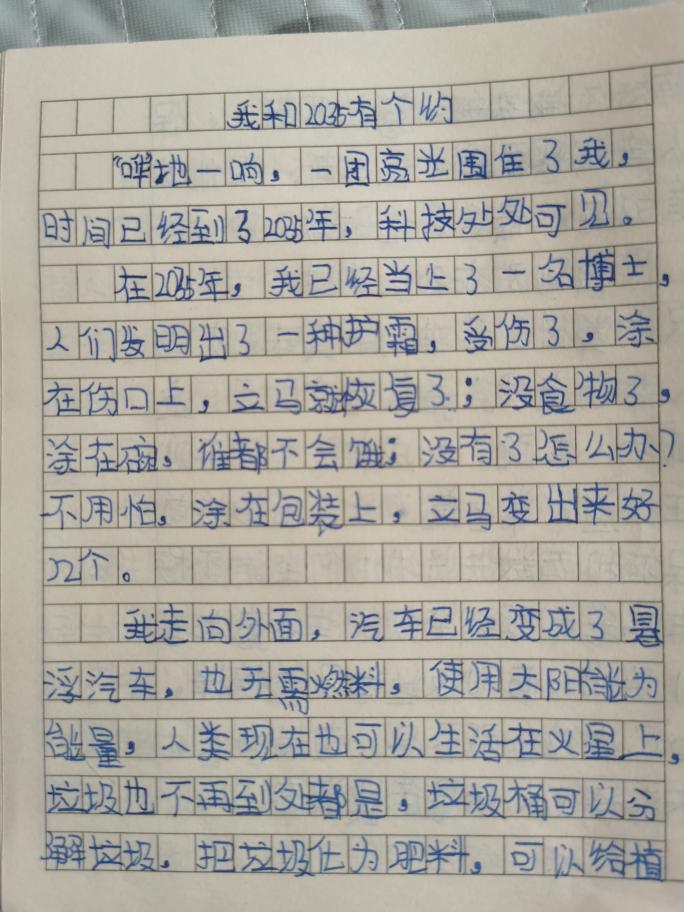 我和2035有个约
“哗”地一响，一团亮光围住了我，
时间已经到了2035年，科技处处可见。
在2035年，我已经当上了一名博士，
人们发明出了一种护霜，受伤了，涂
在伤口上，立马就恢复了；没食物了，
涂在 谁都不会饿；没有了怎么办？
不用怕，涂在包装上，立马变出来好
几个。
我走向外面，汽车已经变成了悬
浮汽车，也无需燃料，使用太阳能为
能量，人类现在也可以生活在火星上，
垃圾也不再到处都是，垃圾桶可以分
解垃圾，把垃圾化为肥料，可以给植